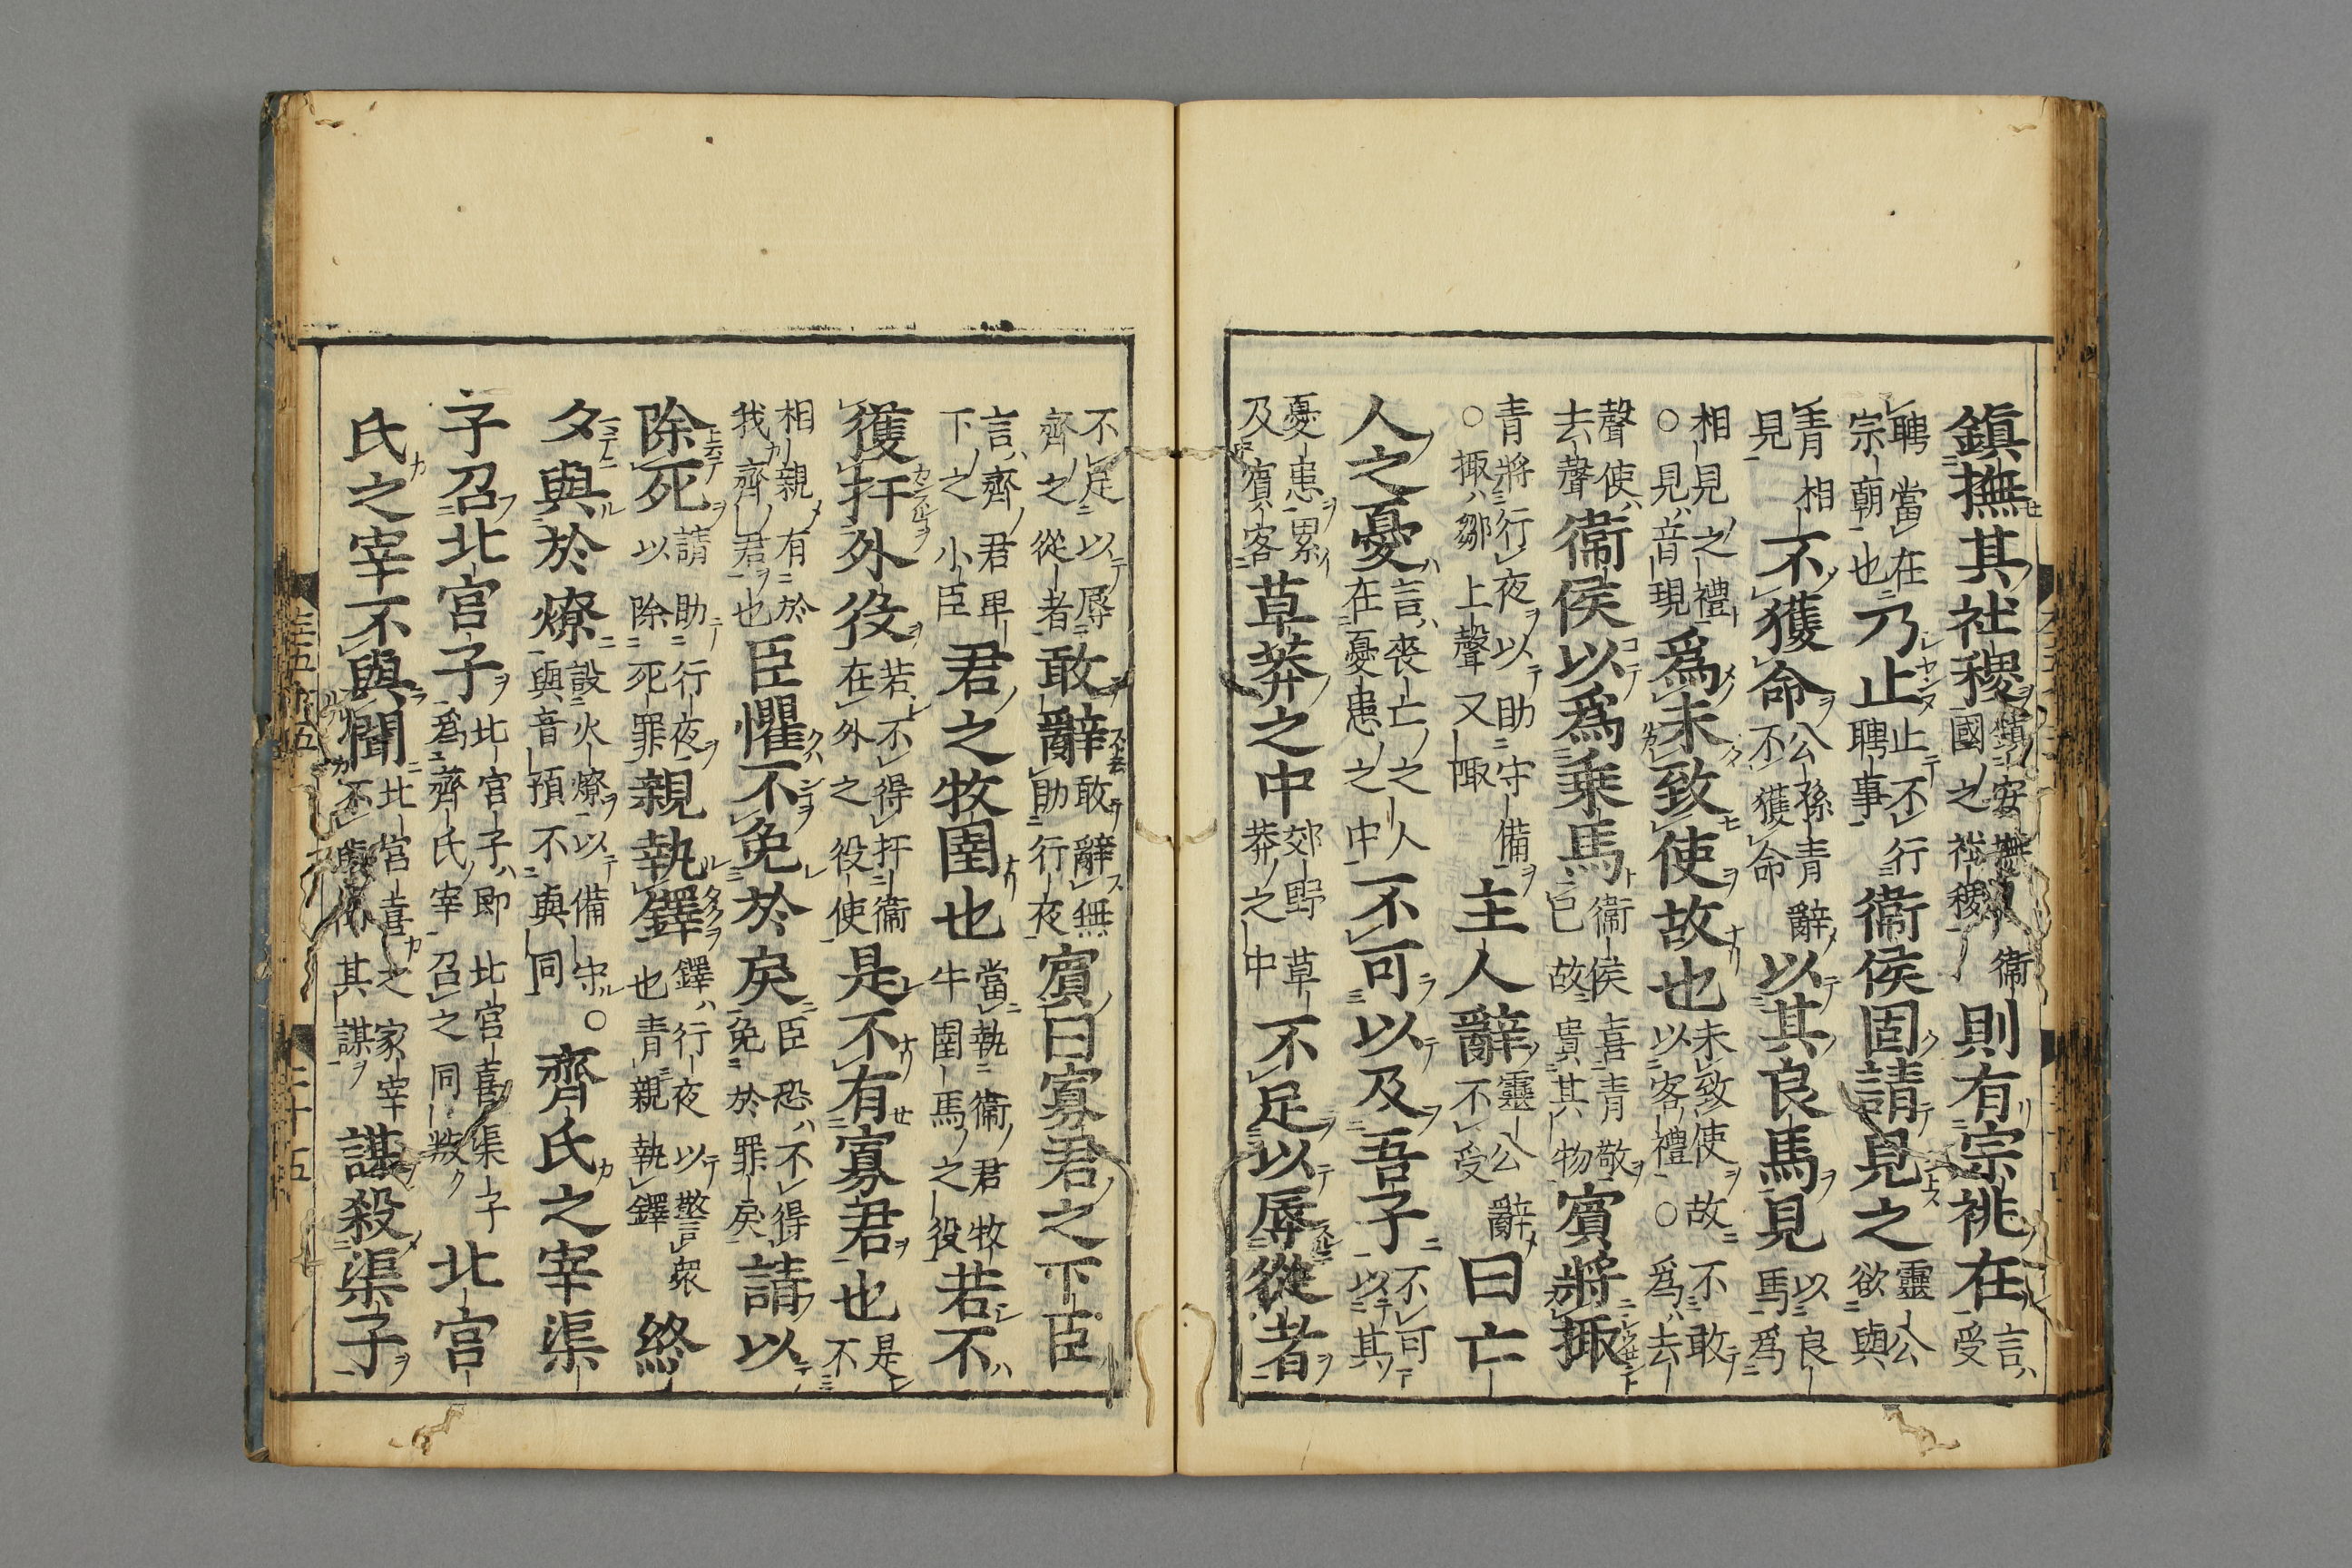 鎮撫其社稷鎮安撫衞國之社稷則有宗祧在言受
聘當在宗朝也乃止止不行聘事衞侯固請見之靈公欲與
青相見不獲命公孫青辭不獲命以其良馬見以良馬爲
相見之禮○見音現爲未致使故也未致使故不敢以客禮○爲去
聲使去聲衞侯以爲乘馬衞侯喜青敬已故貴其物賓將掫
青將行夜以助守備○掫鄒上聲又陬主人辭靈公辭不受曰亡
人之憂言喪亡之人在憂患之中不可以及吾子不可以其
憂患累及賓客草莽之中郊野草莽之中不足以辱從者
不足以辱齊之從者敢辭敢辭無助行夜賓曰寡君之下臣
言齊君卑下之小臣君之牧圉也當執衞君牧牛圉馬之役若不
獲扞外役若不得扞衞在外之役使是不有寡君也是不
相親有於我齊君也臣懼不免於戾臣恐不得免於罪戾請以
除死請助行夜以除死罪親執鐸鐸行夜以警衆也青親執鐸終
夕與於燎設火燎以備守○與音預不與同齊氏之宰渠
子召北宮子北宮子即北宮喜渠子爲齊氏宰召之同叛北宮
氏之宰不與聞北宮喜之家宰不其謀謀殺渠子
二十五